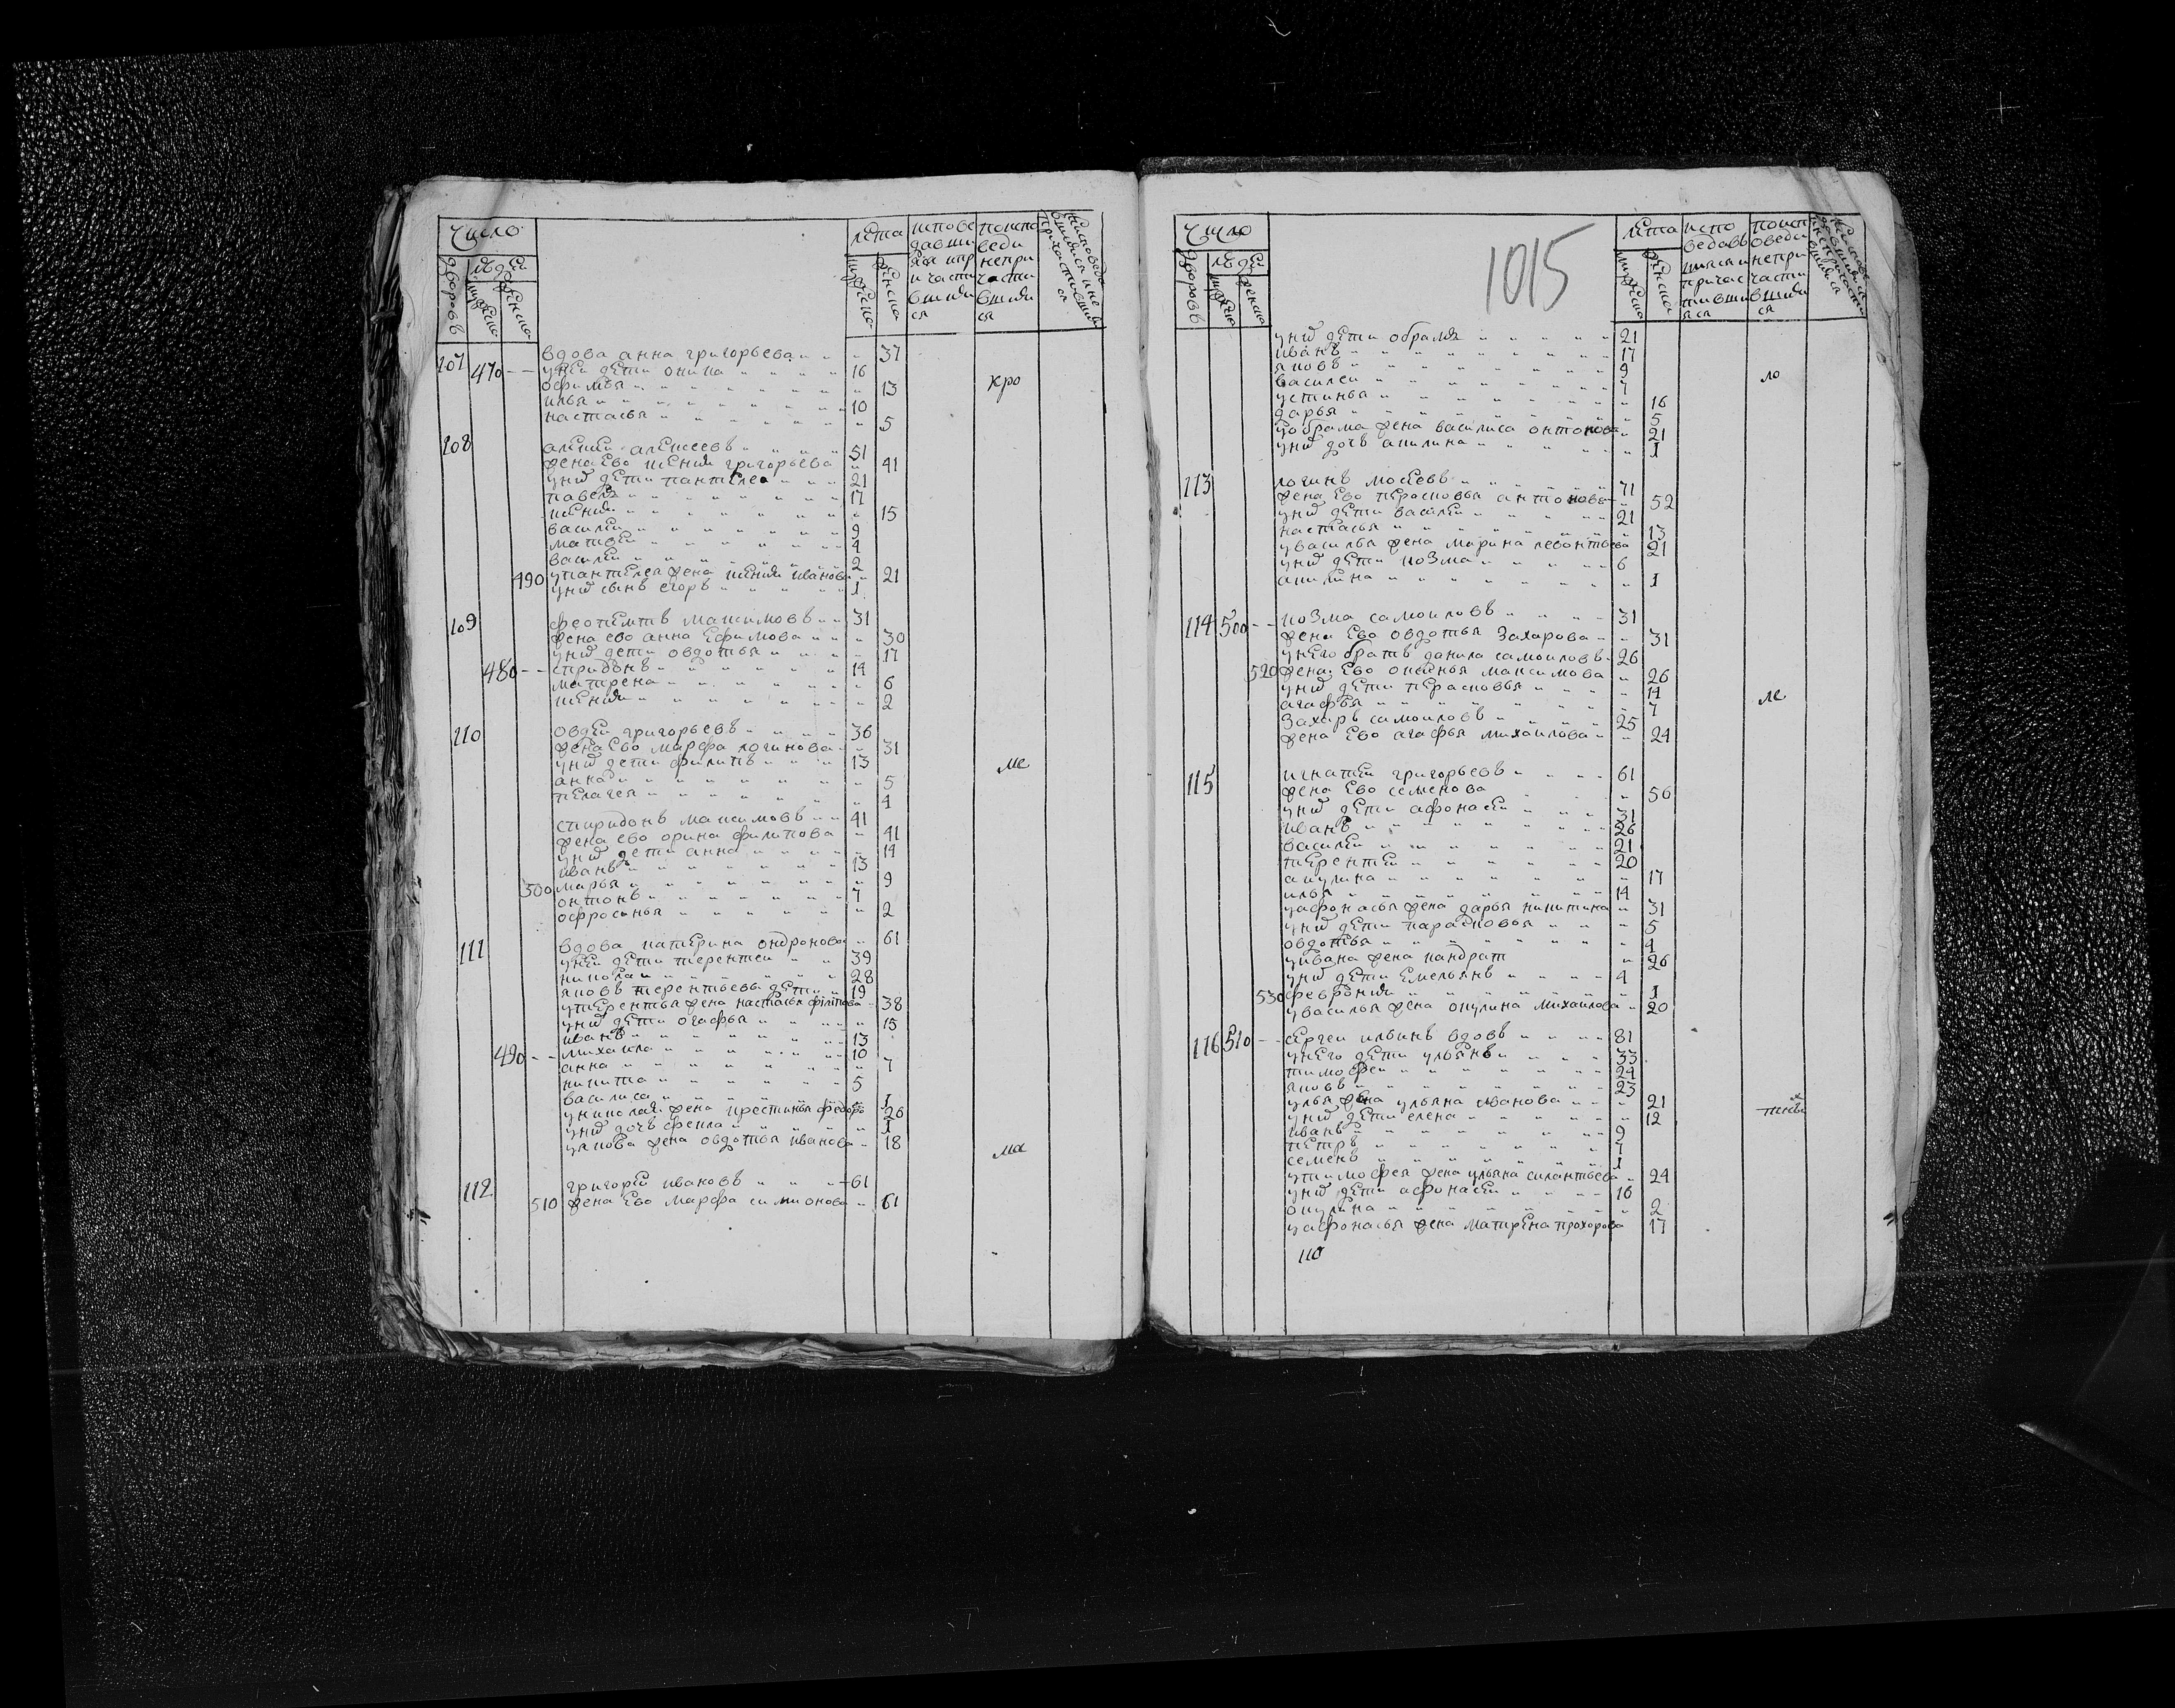 число
людеи
дворовъ
мужеска
женска
лета
мужеска
женска
испове
давши
яся ипр
ичасти
вшия
ся
поиспо
веди
непри
части
вшия
ся
107 470 -- вдова анна григорьева 37
унеи дети 16
офимья 13 кро
илья 10
настасья 5
108 алексеевъ 51
жена ево ксения григорьева 41
унихъ дети пантелеа 21
павелъ 17
ксения 15
василеи 9
матвеи 4
василеи 2
490 упантелея жена ксения иванова 21
унихъ сынъ егоръ 1
109 феоктистъ максимовъ 31
жена ево анна ефимова 30
унихъ дети овдотья 17
480 -- спридонъ 14
матрена 6
ксения 2
110 овдеи григорьевъ 36
жена ево марфа логинова 31
унихъ дети филипъ 13 ме
анна 5
пелагея 4
спиридонъ максимовъ 41
жена ево орина филипова 41
унихъ дети анна 14
иванъ 13
500 марья 9
онтонъ 7
офросинья 2
111 вдова катерина ондронова 61
унеи дети терентеи 39
николаи 28
яковъ терентьевы дети 19
утерентья жена настасья филипова 38
унихъ дети огафья 15
иванъ 13
490 -- михаила 10
анна 7
никита 5
василиса 1
униколая жена крестинья федоро 26
унихъ дочь фекла 1
уякова жена овдотья иванова 18
ма
112 григореи ивановъ 61
510 жена ево марфа симионова 61
число
дворовъ
людеи
мужеска
женска
лета
мужеска
женска
испо
ведавъ
шияся и
причас
тивши
яся
поисп
оведи
непри
части
вшия
ся
1015
унихъ дети обрамъ 21
иванъ 17
яковъ 9
василеи 7 ло
устинья 16
дарья 5
уобрама жена василиса онтонова 21
унихъ дочь акилина 1
113 логинъ мосеевъ 71
жена ево перасковья антонова 52
унихъ дети василеи 21
настасья 13
увасилья жена марина левонтьева 21
унихъ дети козма 6
акилина 1
114 500 -- козма самоиловъ 31
жена ево овдотья захарова 31
унего братъ данила самоиловъ 26
520 жена ево оксинья максимова 26
унихъ дети перасковья 14
агафья 7 ле
захаръ самоиловъ 25
жена ево агафья михаилова 24
115 игнатеи григорьевъ 61
жена ево семенова 56
унихъ дети афонасеи 31
иванъ 26
василеи 21
терентеи 20
акулина 17
илья 14
уафонасья жена дарья никитина 31
унихъ дети парасковья 5
овдотья 4
уивана жена кандрат 26
унихъ дети емельянъ 4
530 феврония 1
увасилья жена окулина михаилова 20
116 510 -- сергеи ильинъ вдовъ 81
унего дети ульянъ 33
тимофеи 24
яковъ 23
улья жена ульяна иванова 21
унихъ дети елена 12
иванъ 9
петръ 7
семенъ 1
утимофея жена ульяна силантьева 24
унихъ дети афонасеи 16
окулина 2
уафонасья жена матрена прохорова 17
110